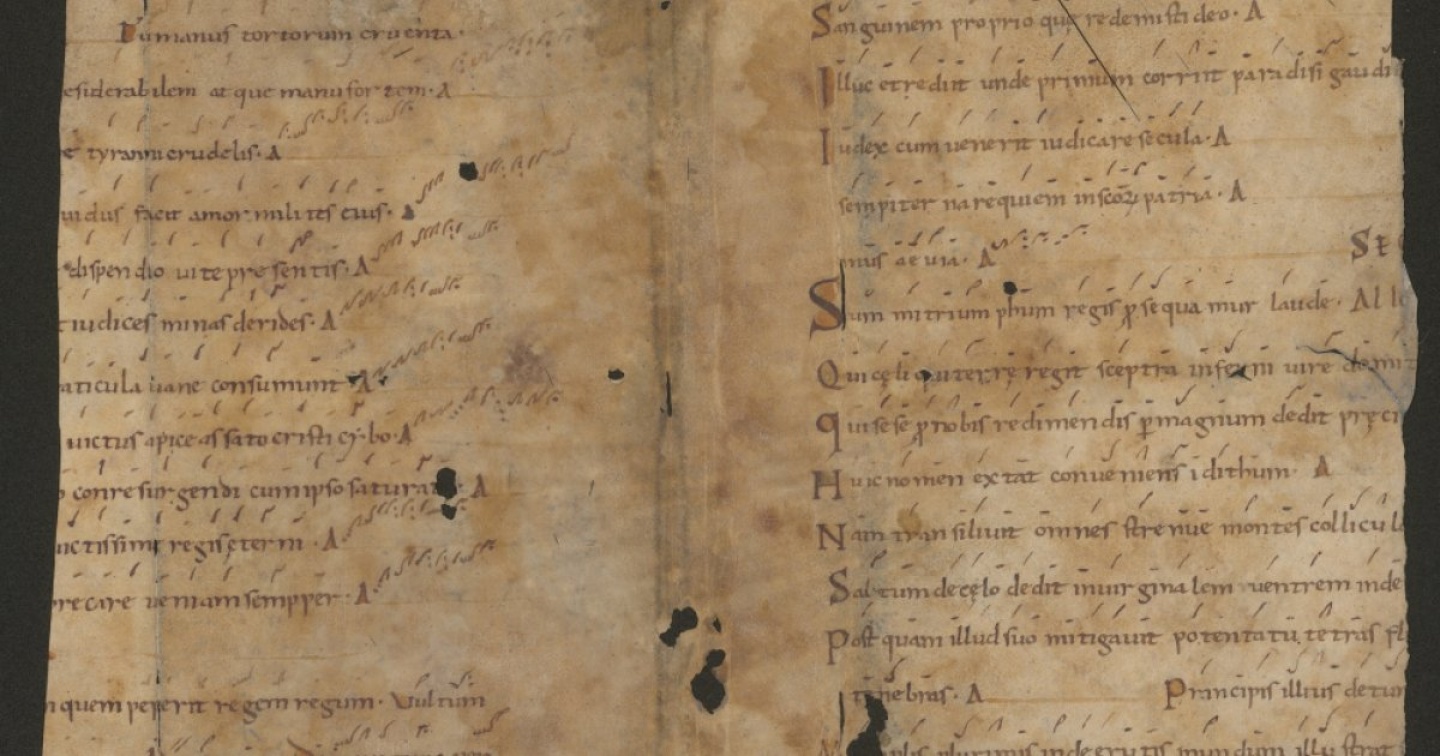 Dumanus tortorum cruenta.
esiderabilem atque manu fortem. A
tyranni crudelis. A
uidus facit amor milites eius. A
dispendio uite presentis. A
iudices minas derides. A
aticula uane consumunt A
uictus apice assato cristi cybo. A
conresurgendi cum ipso satura A
uictissimi regis eterni. A
precare ueniam sempper. A
quem peperit regem regum. Vultum
Sanguinem proprio quę redemisti deo. A
Illuc et rediit unde primum corruit paradisi gaudi
Iudex cum uenerit iudicare secula. A
sempiterna requiem in scoꝝ patria. A
mus aeuia. A
Summi triumphum regis ꝑsequamur laude. Al le
Qui cęli qui terrę regit sceptra inferni iure domit
qui sese ꝓ nobis redimendis ꝑmagnum dedit pręci
Huic nomen extat conueniens idithum. A
Nam transiliuit omnes strenue montes collicul
Saltum de cęlo dedit inuirginalem uentrem inde
Postquam illud suo mitigauit potentatu tetras fl
tenebras. A Principis illius detur
plurimis inde erutis mundum illustrat